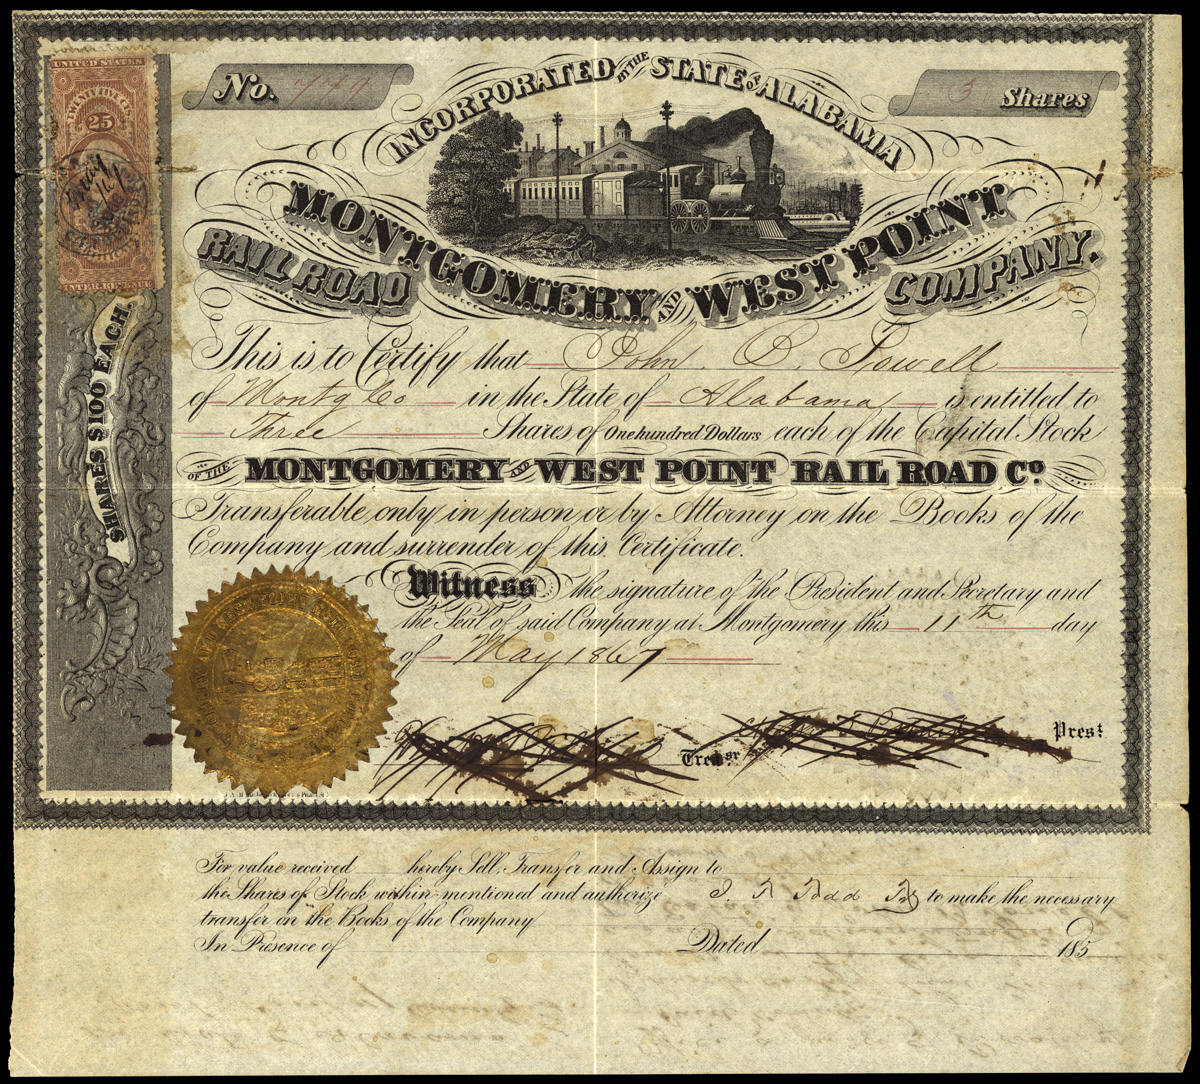 UNITED STATES
TWENTY FIVE CTS.
25
INTER. REVENUE
May
SHARES $100 EACH.
No.
3 Shares
INCORPORATED BY THE STATE OF ALABAMA
MONTGOMERY AND WEST POINT
RAIL ROAD COMPANY.
This is to Certify that John P. Towell
of Montg Co in the State of Alabama is entitled to
Three Shares of One hundred Dollars each of the Capital Stock
OF THE MONTGOMERY AND WEST POINT RAIL ROAD Co.
Transferable only in person or by Attorney on the Books of the
Company and surrender of this Certificate.
Witness the signature of the President and Secretary and
the Seal of said Company at Montgomery this 11th day
of May 1867
Treasr. Prest.
For value received hereby Sell, Transfer and Assign to
the Shares of Stock within mentioned and authorize Todd to make the necessary
transfer on the Books of the Company
In Presence of Dated 185